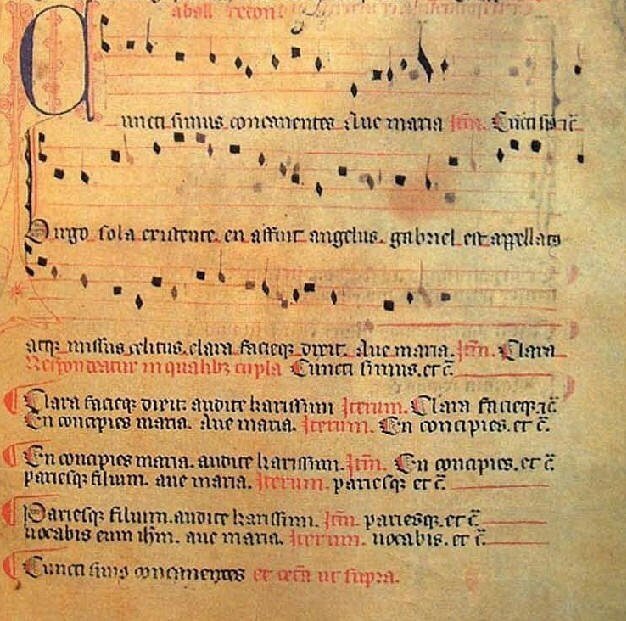 a ball redon
Cuncti simus concanentes Aue maria Itm. Cuncti sim⁹ ⁊c̄
Virgo sola existente en affuit angelus. gabriel est appellatus
atqꝫ missus celitus. clara facieqꝫ dixit. Aue maria. Itm. Clara
Respondeatur in qualibꝫ cupla Cuncti simus. et c̄.
Clara facieqꝫ dixit. audite karissimi Iterum. Clara facieqꝫ ⁊c̄
En concipies maria. aue maria. Iterum. En concipies. et c̄.
En concipies maria. audite karissimi. Itm̄. En concipies. et c̄
pariesqꝫ filium. aue maria. Iterum. pariesqꝫ et c̄.
Pariesqꝫ filium. audite karissimi. Itm̄ pariesqꝫ. et c̄.
uocabis eum ihm̄. aue maria. Iterum. uocabis. et c̄.
Cuncti simus concanentes et cetera ut supra.